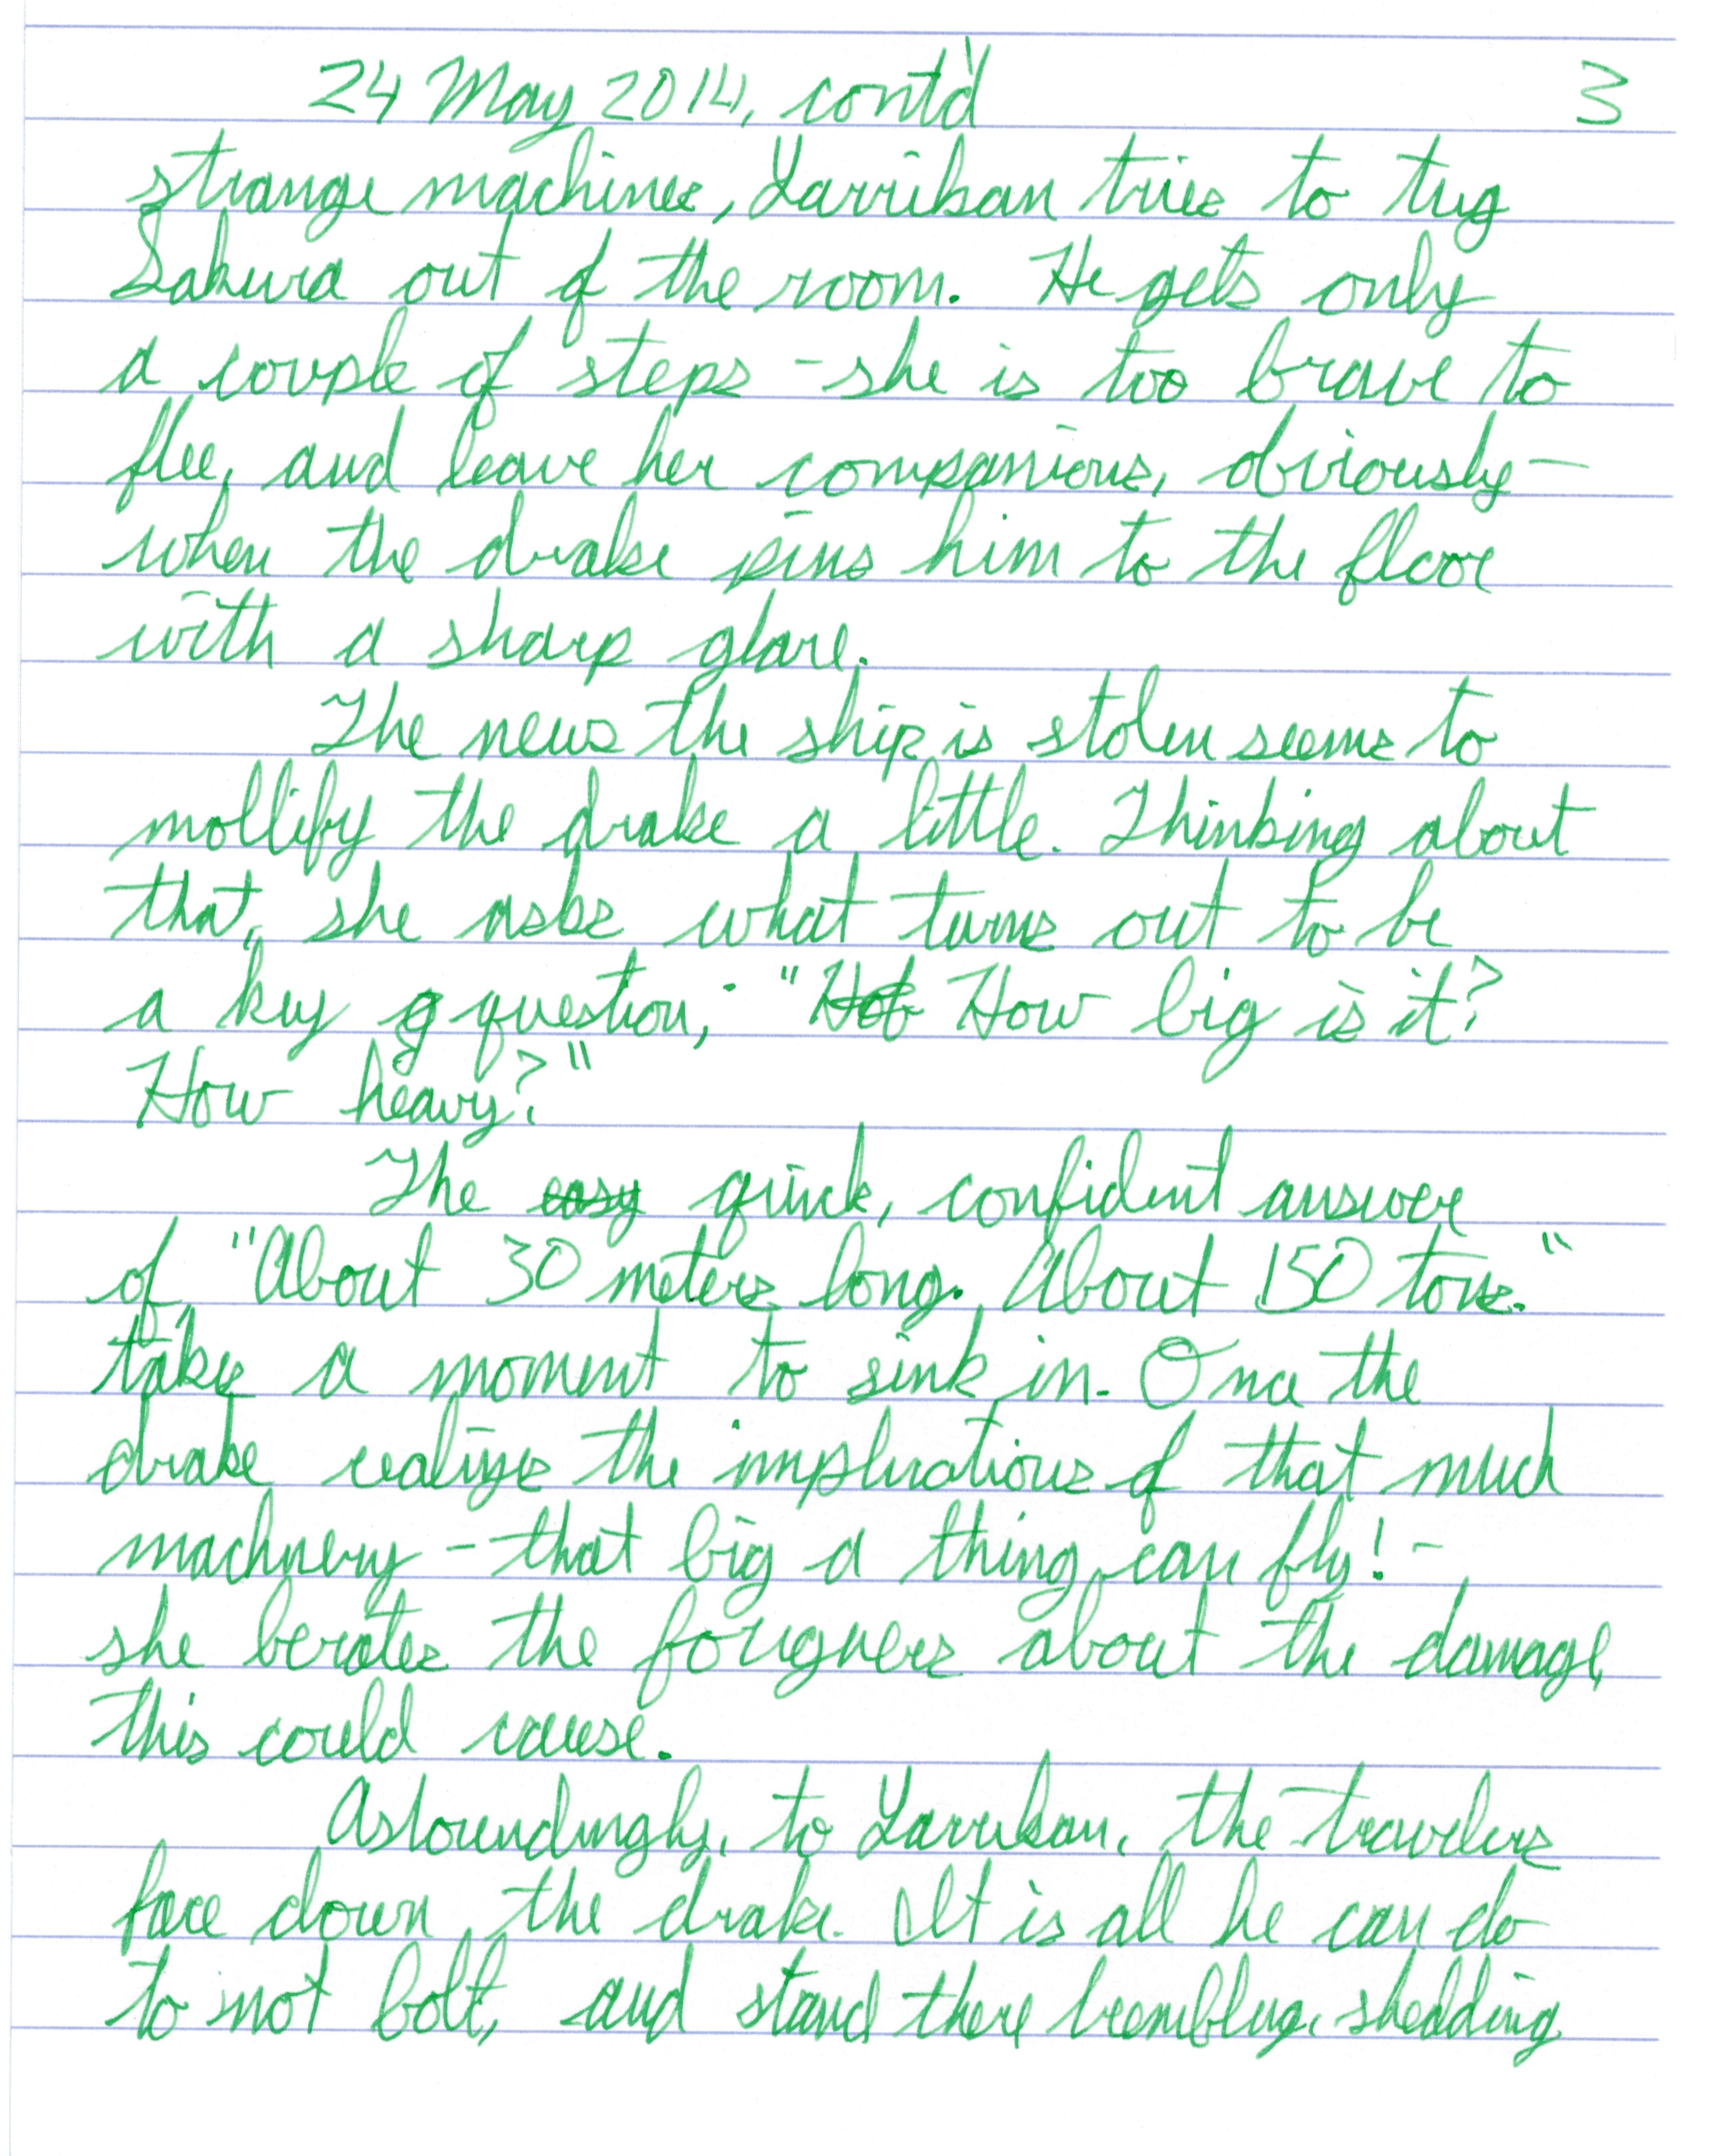 24 May 2014, cont'd 3
strange machines, Larrikan tries to tug
Sakura out of the room. He gets only
a couple of steps - she is too brave to
flee, and leave her companions, obviously -
when the drake pins him to the floor
with a sharp glare.
The news the ship is stolen seems to
mollify the drake a little. Thinking about
that, she asks what turns out to be
a key q question; "Hot How big is it?
How heavy?"
The easy quick, confident answer
of "About 30 meters long. About 150 tons."
takes a moment to sink in. Once the
drake realizes the implications of that much
machinery - that big a thing can fly! -
she berates the foreigners about the damage
this could cause.
Astoundingly, to Larrikan, the travelers
face down the drake. It is all he can do
to not bolt, and stand there trembling, shedding